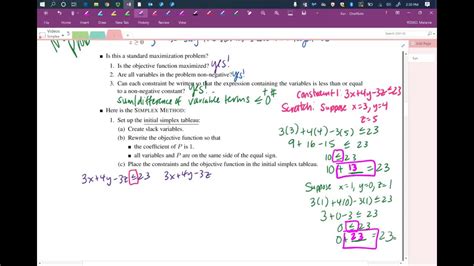 Is this a standard maximization problem? yes!
1. Is the objective function maximized? yes!
2. Are all variables in the problem non-negative? yes!
3. Can each constraint be written so that the expression containing the variables is less than or equal
to a non-negative constant? yes!
sum/difference of variable terms ≤ 0 + #
Here is the SIMPLEX METHOD:
1. Set up the initial simplex tableau:
(a) Create slack variables.
(b) Rewrite the objective function so that
the coefficient of P is 1.
all variables and P are on the same side of the equal sign.
(c) Place the constraints and the objective function in the initial simplex tableau.
3x+4y-3z≤23 3x+4y-3z
constraint 1: 3x+4y-3z≤23
Scratch: Suppose x=3, y=4
z=5
3(3)+4(4)-3(5)≤23
9+16-15≤23
10≤23
10+13=23
Suppose x=1, y=0, z=1
3(1)+4(0)-3(1)≤23
3+0-3≤23
0≤23
0+23=23